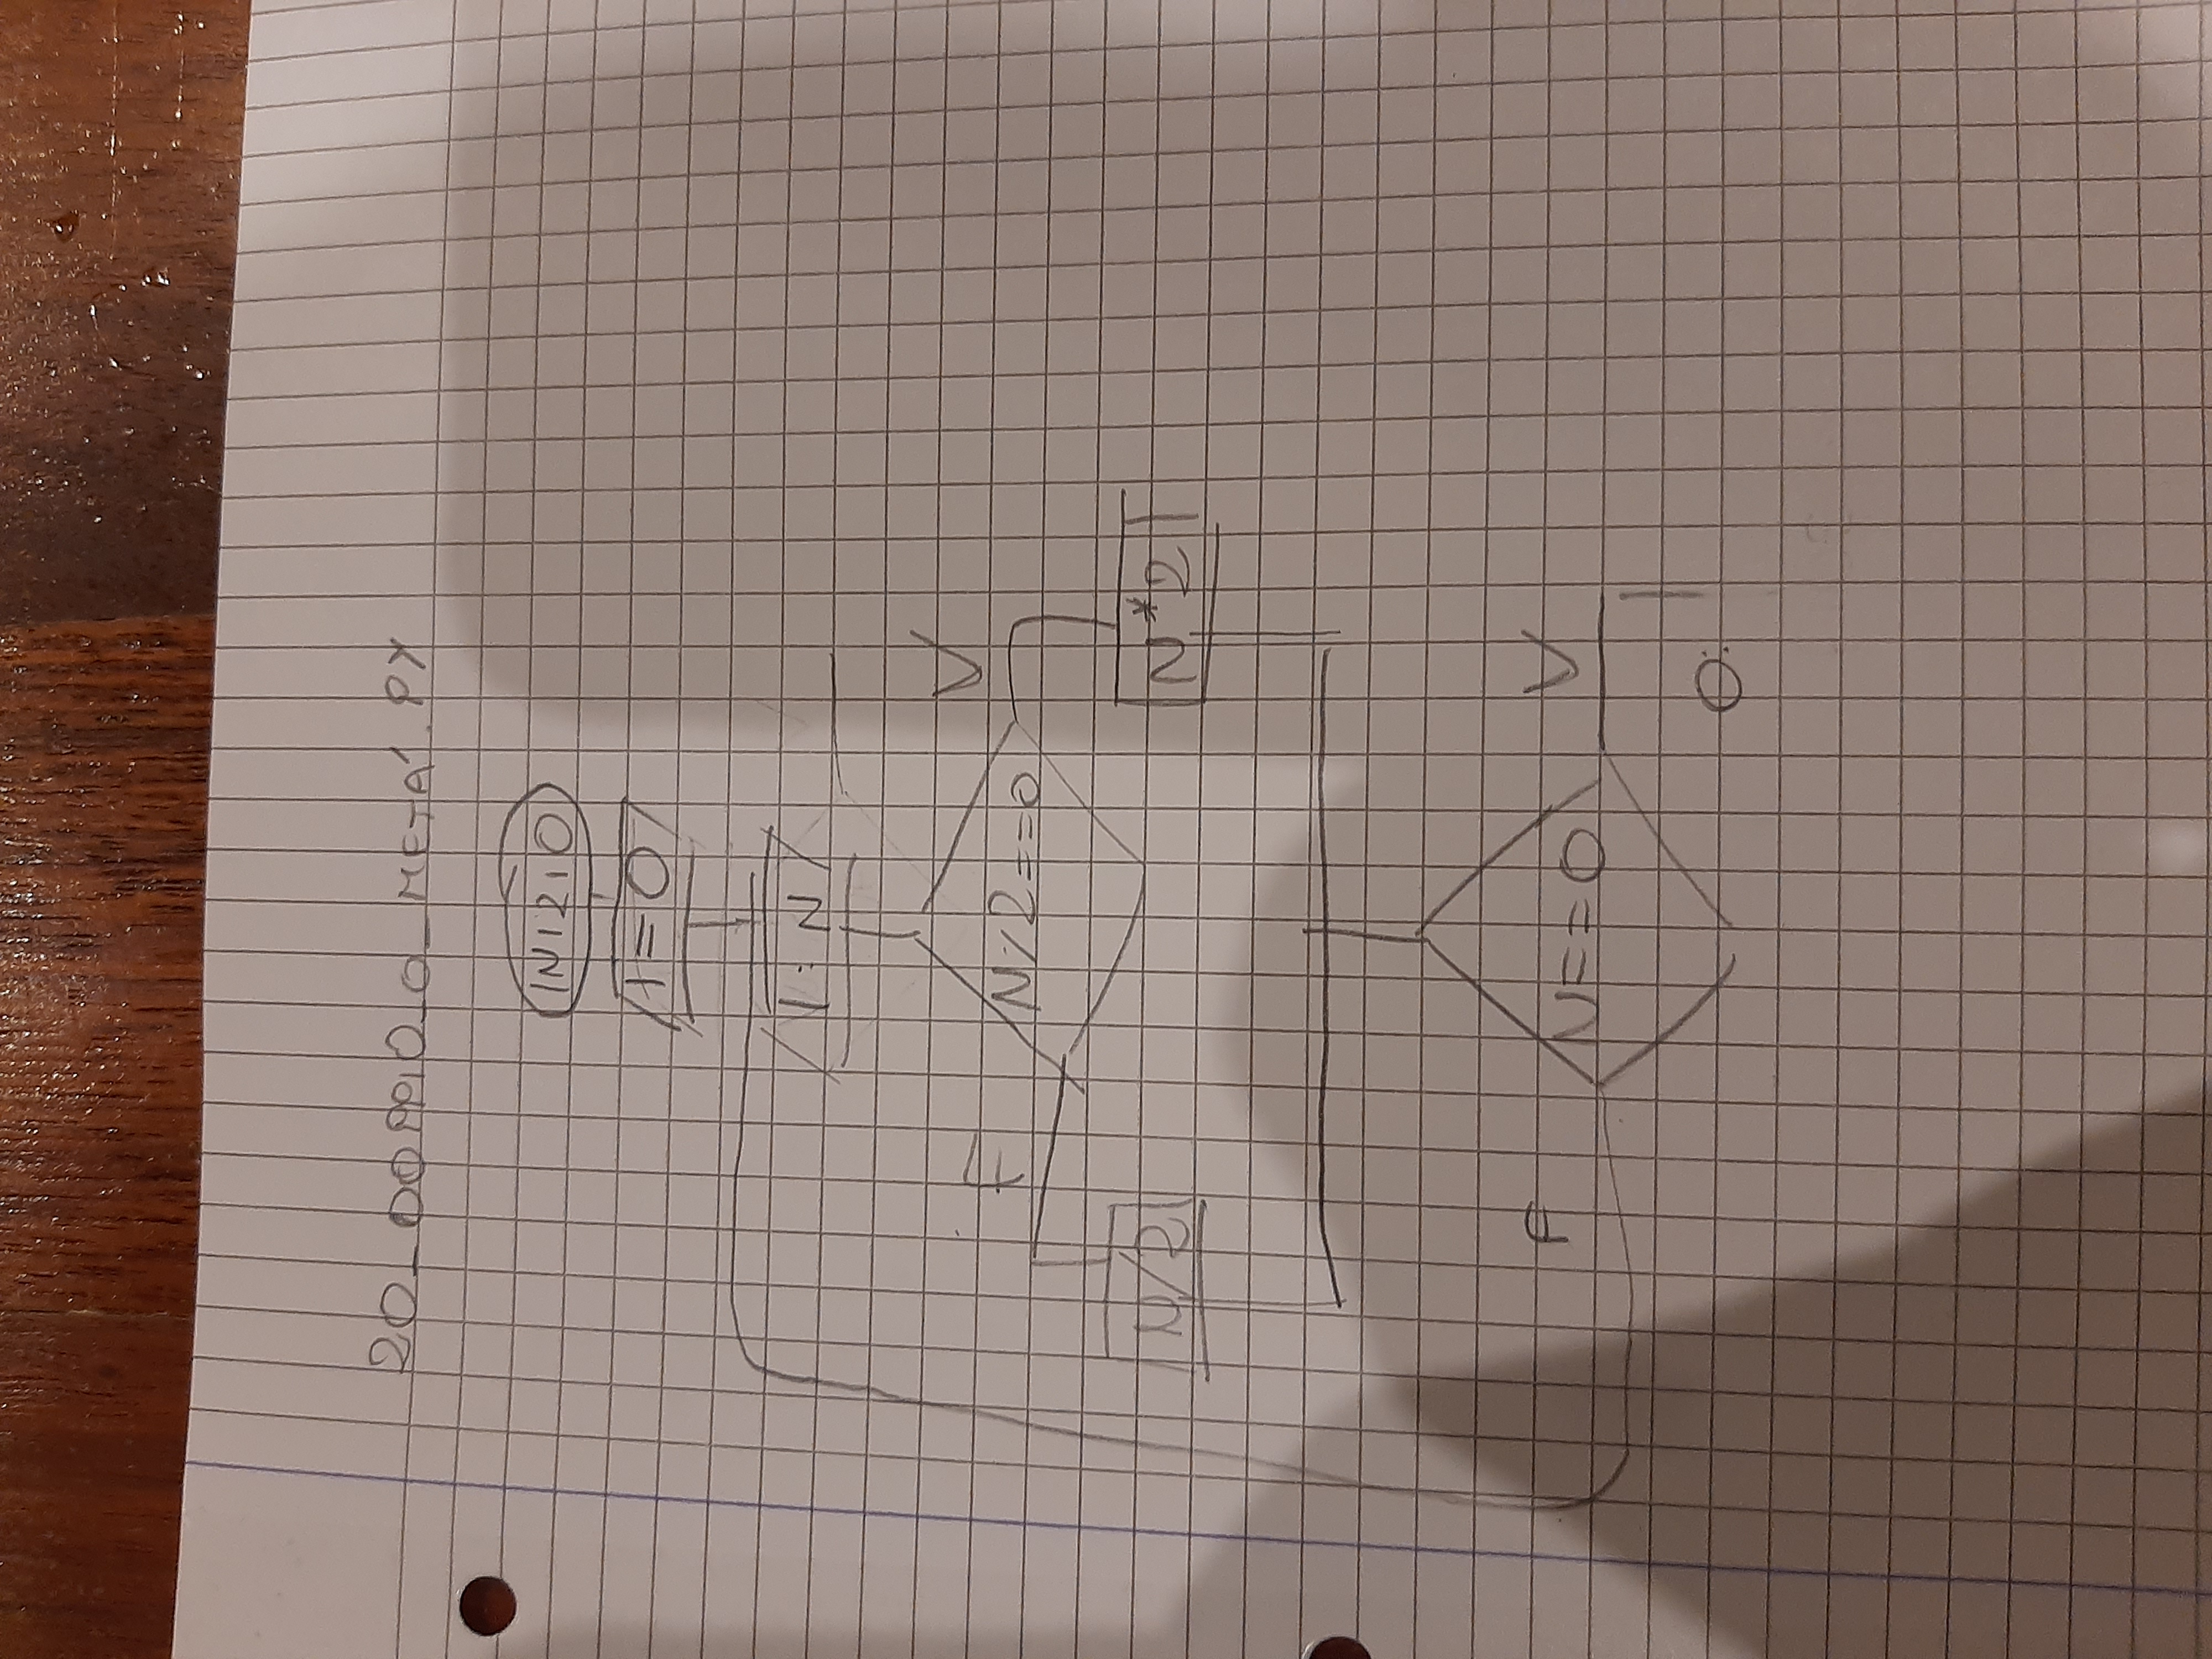 20_DOPPIO_O_META'.PY
INIZIO
I=0
I: N
F
N%2==0
V
N/2
N*2
F
N==0
V
O: